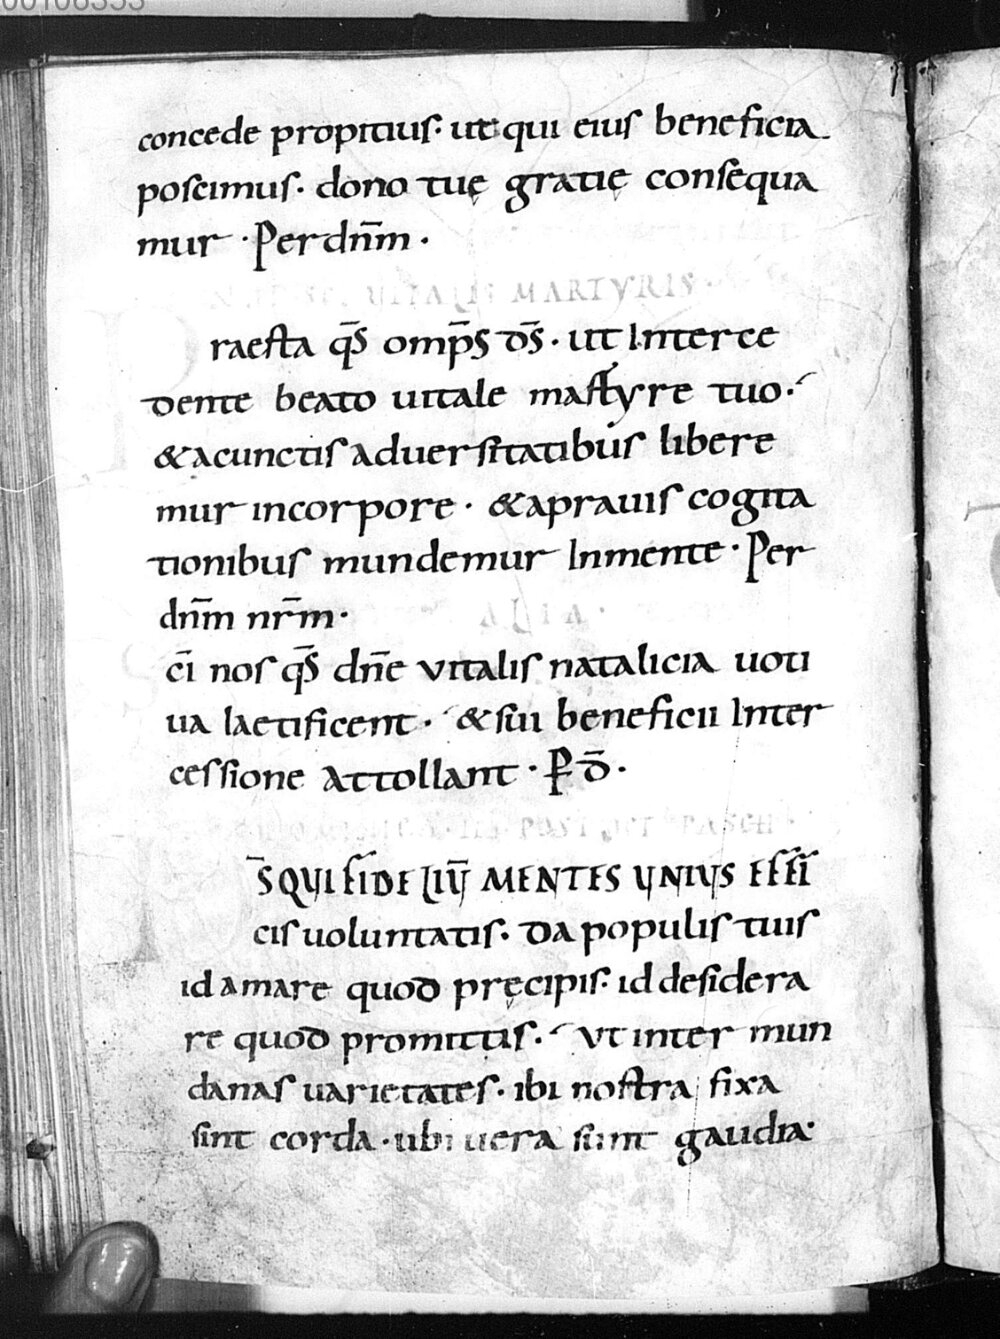 00108353
concede propitius· ut qui eius beneficia
poscimus· dono tuę gratię consequa
mur · Per dn̄m ·
UITALIS MARTYRIS ·
raesta q̄s omp̄s ds̄ · ut Interce
dente beato uitale martyre tuo·
& a cunctis aduersitatibus libere
mur in corpore · & a prauis cogita
tionibus mundemur In mente · Per
dn̄m nr̄m ·
ALIA ·
c̄i nos q̄s dn̄e vitalis natalicia uoti
ua laetificent · & sui beneficii Inter
cessione attollant · P̱ D̄ ·
POST OCT PASCH
S̄ QUI FIDELIŪ MENTES UNIUS EFFI
cis uoluntatis · da populis tuis
id amare quod pręcipis· id desidera
re quod promittis · Vt inter mun
danas uarietates · ibi nostra fixa
sint corda · ubi uera sunt gaudia·